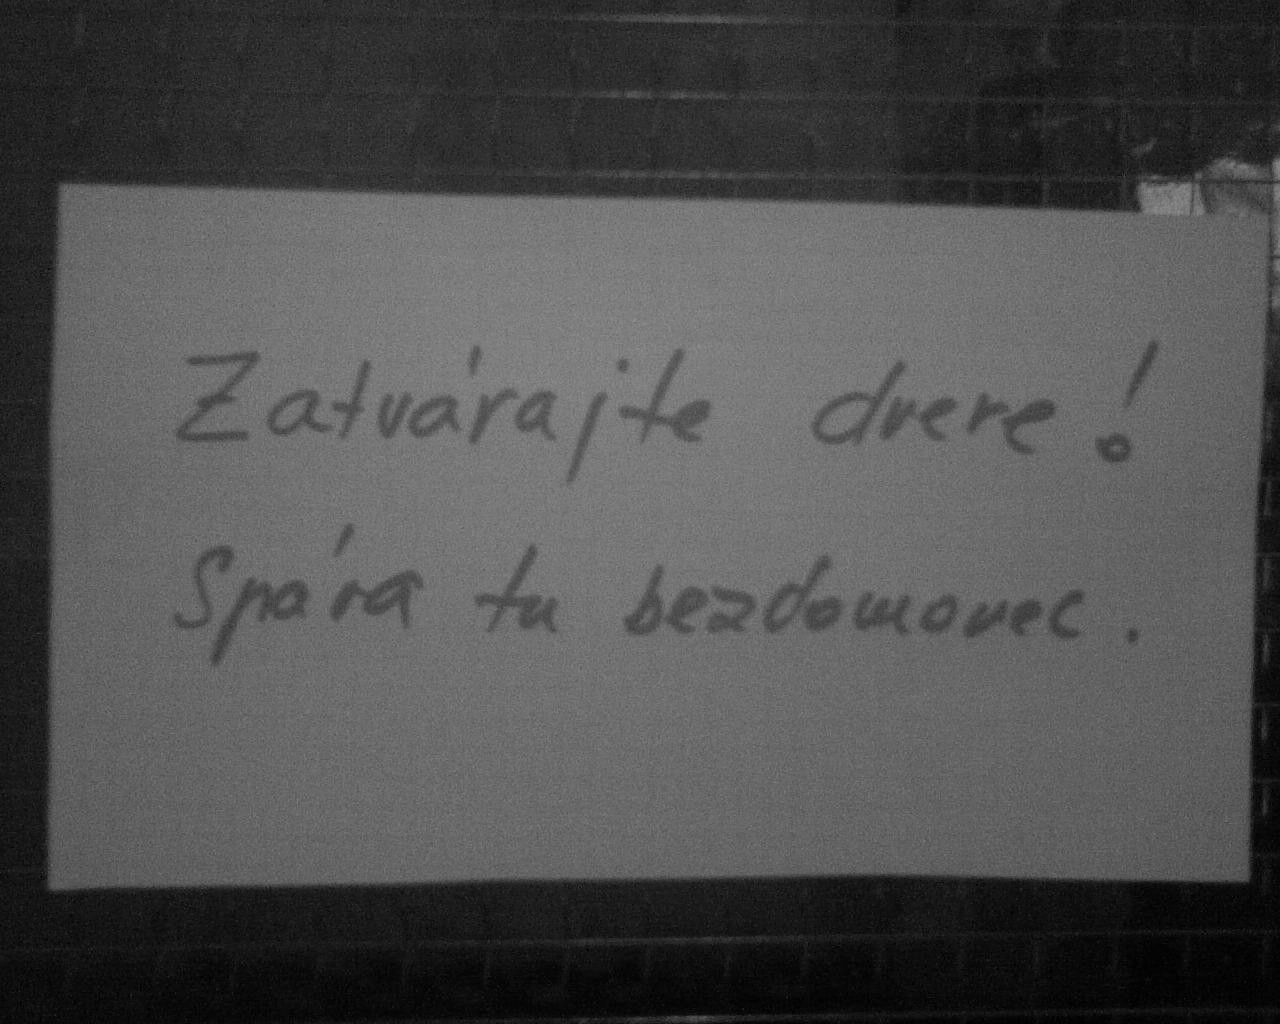 Zatvárajte dvere!
Spára tu bezdomovec.